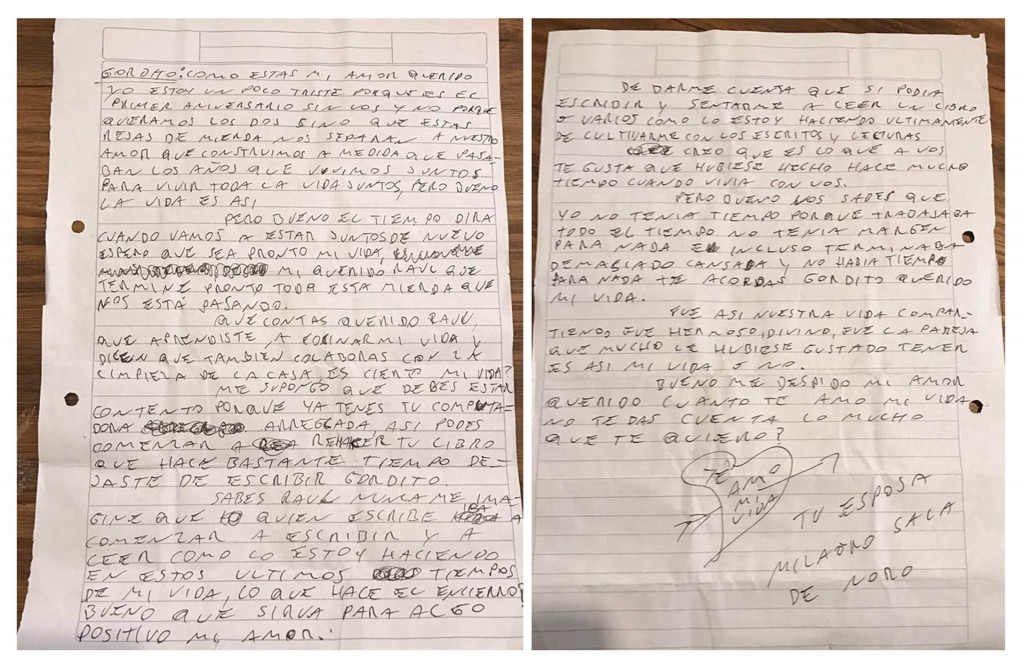 GORDITO: COMO ESTAS MI AMOR QUERIDO
YO ESTOY UN POCO TRISTE PORQUE ES EL
PRIMER ANIVERSARIO SIN VOS Y NO PORQUE
QUERAMOS LOS DOS SINO QUE ESTAS
REJAS DE MIERDA NOS SEPARAN A NUESTRO
AMOR QUE CONSTRUIMOS A MEDIDA QUE PASA-
BAN LOS AÑOS QUE VIVIMOS JUNTOS
PARA VIVIR TODA LA VIDA JUNTOS, PERO BUENO
LA VIDA ES ASI
PERO BUENO EL TIEMPO DIRA
CUANDO VAMOS A ESTAR JUNTOS DE NUEVO
ESPERO QUE SEA PRONTO MI VIDA,
MI QUERIDO RAUL QUE
TERMINE PRONTO TODA ESTA MIERDA QUE
NOS ESTÁ PASANDO.
QUE CONTAS QUERIDO RAUL,
QUE APRENDISTE A COCINAR MI VIDA Y
DICEN QUE TAMBIEN COLABORAS CON LA
LIMPIEZA DE LA CASA, ES CIERTO MI VIDA?
ME SUPONGO QUE DEBES ESTAR
CONTENTO PORQUE YA TENES TU COMPUTA-
DORA ARREGLADA ASI PODES
COMENZAR A REHACER TU LIBRO
QUE HACE BASTANTE TIEMPO DE-
JASTE DE ESCRIBIR GORDITO.
SABES RAUL NUNCA ME IMA-
GINE QUE QUIEN ESCRIBE IBA A
COMENZAR A ESCRIBIR Y A
LEER COMO LO ESTOY HACIENDO
EN ESTOS ULTIMOS TIEMPOS
DE MI VIDA, LO QUE HACE EL ENCIERRO?
BUENO QUE SIRVA PARA ALGO
POSITIVO MI AMOR.
DE DARME CUENTA QUE SI PODIA
ESCRIBIR Y SENTARME A LEER UN LIBRO
O VARIOS COMO LO ESTOY HACIENDO ULTIMAMENTE
DE CULTIVARME CON LOS ESCRITOS Y LECTURAS
CREO QUE ES LO QUE A VOS
TE GUSTA QUE HUBIESE HECHO HACE MUCHO
TIEMPO CUANDO VIVIA CON VOS.
PERO BUENO VOS SABES QUE
YO NO TENIA TIEMPO PORQUE TRABAJABA
TODO EL TIEMPO NO TENIA MARGEN
PARA NADA E INCLUSO TERMINABA
DEMASIADO CANSADA Y NO HABIA TIEMPO
PARA NADA TE ACORDAS GORDITO QUERIDO
MI VIDA.
FUE ASI NUESTRA VIDA COMPAR-
TIENDO, FUE HERMOSO, DIVINO, FUE LA PAREJA
QUE MUCHO LE HUBIESE GUSTADO TENER
ES ASI MI VIDA O NO.
BUENO ME DESPIDO MI AMOR
QUERIDO CUANTO TE AMO MI VIDA
NO TE DAS CUENTA LO MUCHO
QUE TE QUIERO?
TE AMO
MI
VIDA
TU ESPOSA
MILAGRO SALA
DE NORO